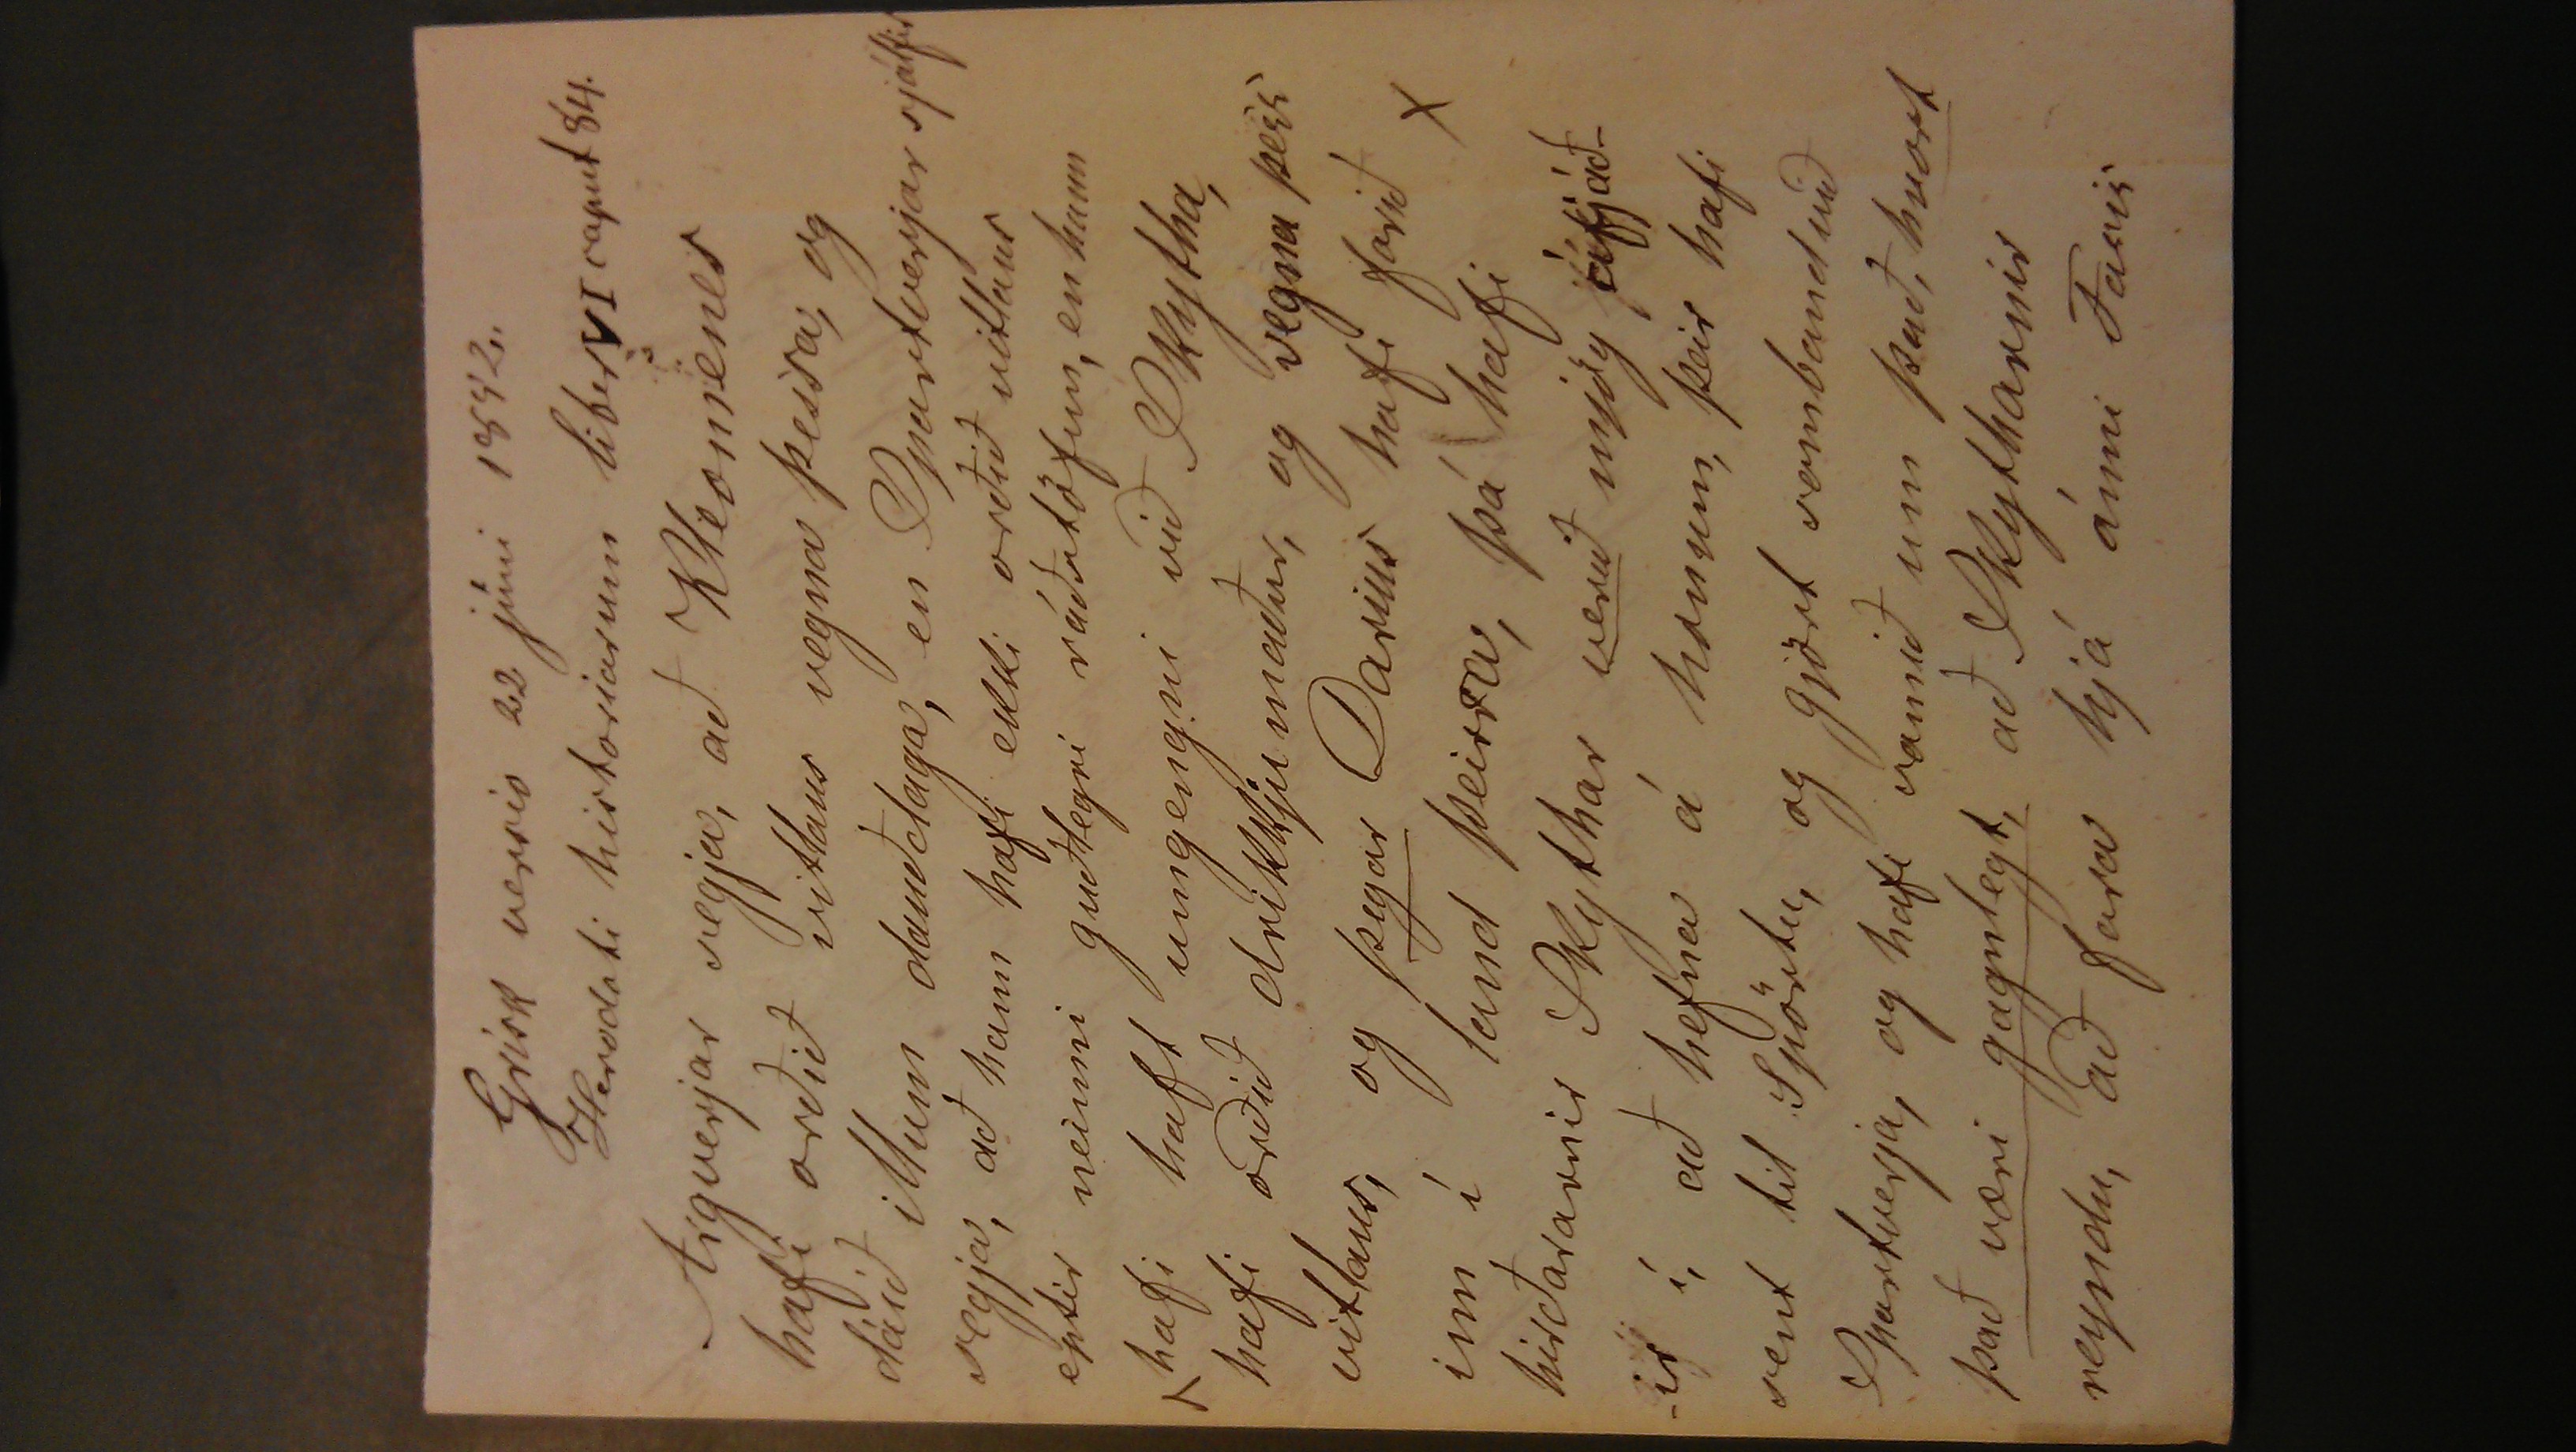 Grísk versio 22 júní 1892.
Herodoti historiarum liber VI caput 84.
Argverjar segja, að Kleomenes
hafi orðið vitlaus vegna þessa, og
dáið illum dauðdaga, en Spartverjar sjálfir
segja, að hann hafi ekki orðið vitlaus
eptir neinni guðlegri ráðstöfun, en hann
hafi haft umgengni við Skytha,
hafi orðið drikkjumaður, og vegna þess
vitlaus, og þegar Darius hafi farið X
inn í land þeirra, þá hafi
hirðararnir Skythar verið mjög áfjáð-
-ir í, að hefna á honum, þeir hafi
sent til Spörtu, og gjört samband við
Spartverja, og hafi samið um það, hvort
það væri gagnlegt, að Skytharnir
reyndu, að fara hjá ánni Fasis